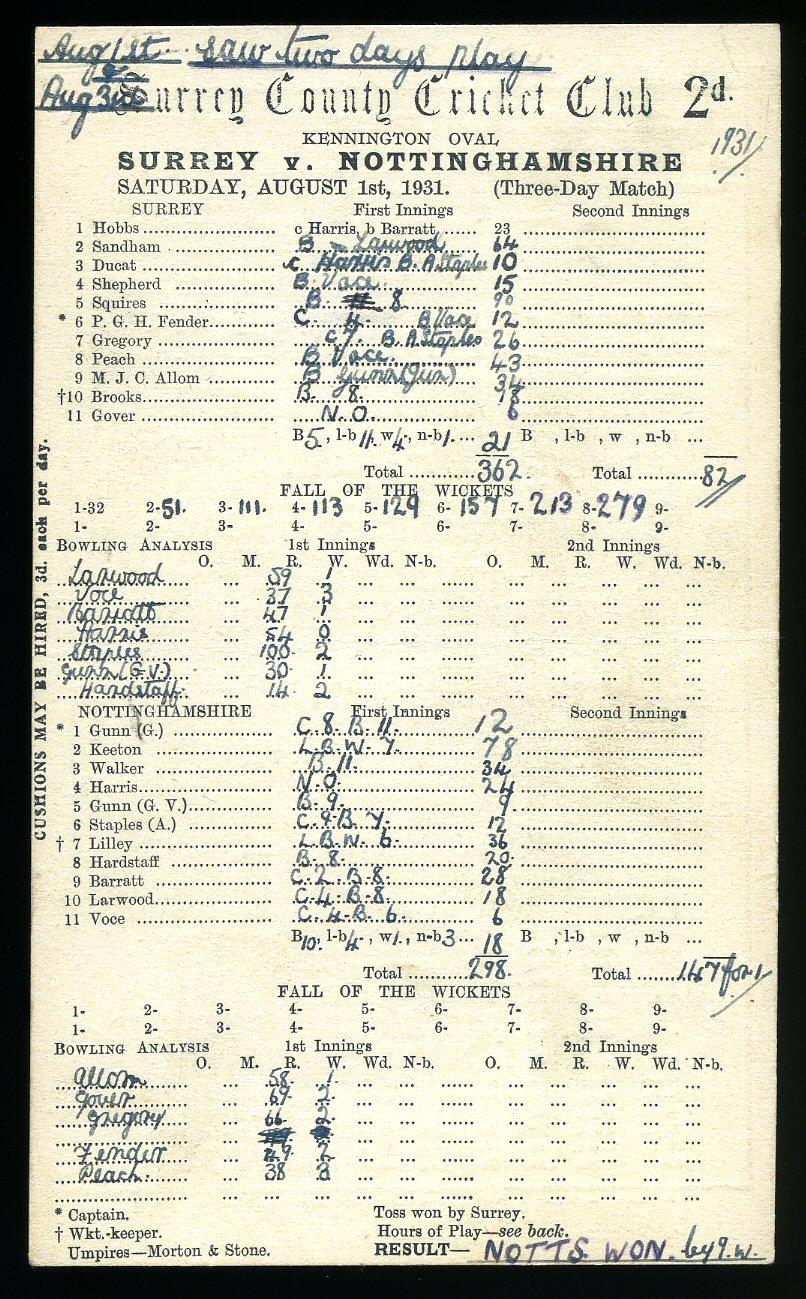 Aug 1st. saw two days play
&
Aug 3rd
Surrey County Cricket Club 2d.
KENNINGTON OVAL
1931
SURREY v. NOTTINGHAMSHIRE
SATURDAY, AUGUST 1st, 1931. (Three-Day Match)
SURREY First Innings Second Innings
1 Hobbs c Harris, b Barratt 23
2 Sandham B Larwood 64
3 Ducat c. Harris B. A Staples 10
4 Shepherd B Voce 15
5 Squires B 8 90
* 6 P. G. H. Fender C 4 B Voce 12
7 Gregory C 7. B. A Staples 26
8 Peach B Voce. 43
9 M. J. C. Allom B Gunn (Jun) 34
†10 Brooks B. 8. 18
11 Gover N. O. 6
B 5, l-b 11, w 4, n-b 1. ... 21 B , l-b , w , n-b ...
Total 362 Total 82
FALL OF THE WICKETS
1-32 2-51. 3-111. 4-113 5-129 6-157 7-213 8-279 9-
1- 2- 3- 4- 5- 6- 7- 8- 9-
BOWLING ANALYSIS 1st Innings 2nd Innings
O. M. R. W. Wd. N-b. O. M. R. W. Wd. N-b.
Larwood 59 1
Voce 37 3
Barratt 47 1
Harris 54 0
Staples 100 2
Gunn (G.V.) 30 1
Hardstaff 14 2
NOTTINGHAMSHIRE First Innings Second Innings
* 1 Gunn (G.) C 8 B 11 12
2 Keeton L.B.W. 7. 78
3 Walker B 11 34
4 Harris N.O. 24
5 Gunn (G. V.) B. 9. 9
6 Staples (A.) C. 9 B. 7. 12
† 7 Lilley L.B.W. 6. 36
8 Hardstaff B. 8. 20
9 Barratt C. 2. B. 8. 28
10 Larwood C. 4. B. 8. 18
11 Voce C. 4. B. 6. 6
B 10, l-b 4, w 1, n-b 3 ... 18 B , l-b , w , n-b ...
Total 298 Total 147 for 1
FALL OF THE WICKETS
1- 2- 3- 4- 5- 6- 7- 8- 9-
1- 2- 3- 4- 5- 6- 7- 8- 9-
BOWLING ANALYSIS 1st Innings 2nd Innings
O. M. R. W. Wd. N-b. O. M. R. W. Wd. N-b.
Allom 58 1
Gover 69 2
Gregory 66 2
Fender 49 2
Peach 38 3
* Captain. Toss won by Surrey.
† Wkt.-keeper. Hours of Play—see back.
Umpires—Morton & Stone. RESULT— NOTTS. WON. by 9. w.
CUSHIONS MAY BE HIRED, 3d. each per day.